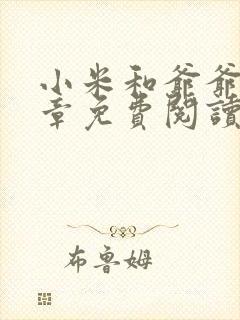 小米和爺爺
章免費閱讀
布魯姆